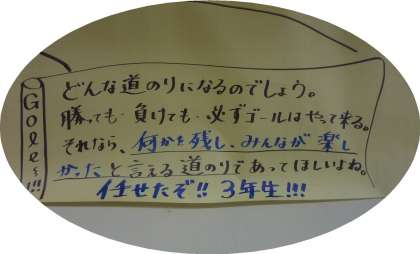 どんな道のりになるのでしょう。
勝っても・負けても・必ずゴールはやって来る。
それなら、何かを残し、みんなが楽し
かったと言える道のりであってほしいよね。
任せたぞ!! 3年生!!!